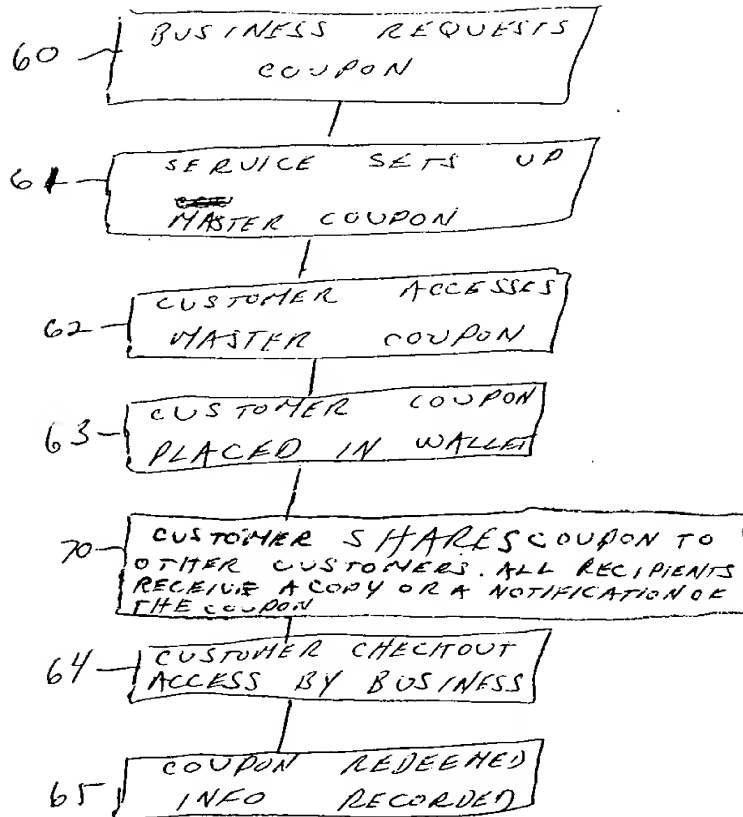 60 BUSINESS REQUESTS
COUPON
61 SERVICE SETS UP
MASTER COUPON
62 CUSTOMER ACCESSES
MASTER COUPON
63 CUSTOMER COUPON
PLACED IN WALLET
70 CUSTOMER SHARES COUPON TO
OTHER CUSTOMERS. ALL RECIPIENTS
RECEIVE A COPY OR A NOTIFICATION OF
THE COUPON
64 CUSTOMER CHECKOUT
ACCESS BY BUSINESS
65 COUPON REDEEMED
INFO RECORDED